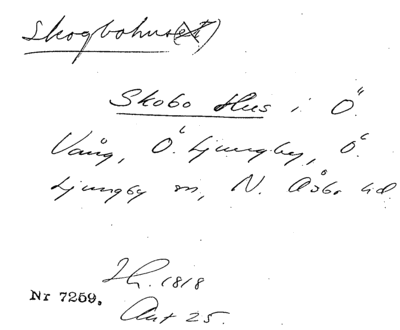 Skogbohus(et)
Skobo Hus i Ö.
Vång, Ö. Ljungby, Ö.
Ljungby sn, N. Åsbo hd
Jh. 1818
Nr 7259.
Akt 25.